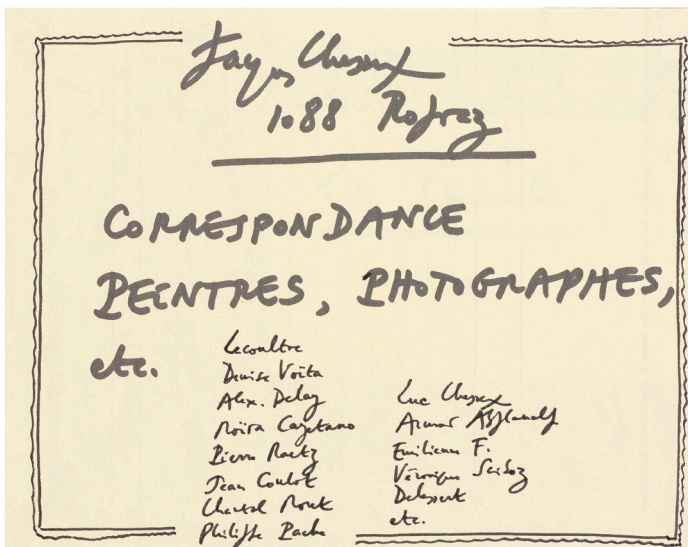 Jacques Chessex
1088 Ropraz
CORRESPONDANCE
PEINTRES, PHOTOGRAPHES,
etc.
Lecoultre
Denise Voïta
Alex. Delay
Moira Cayetano
Pierre Raetz
Jean Coulot
Chantal Moret
Philippe Pache
Luc Chessex
Emilienne F.
Véronique
Delessert
etc.